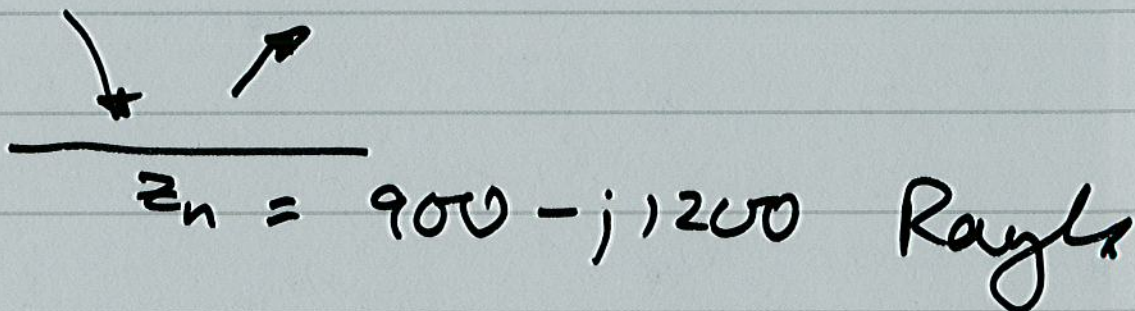 zn = 900 - j 1200 Rayls